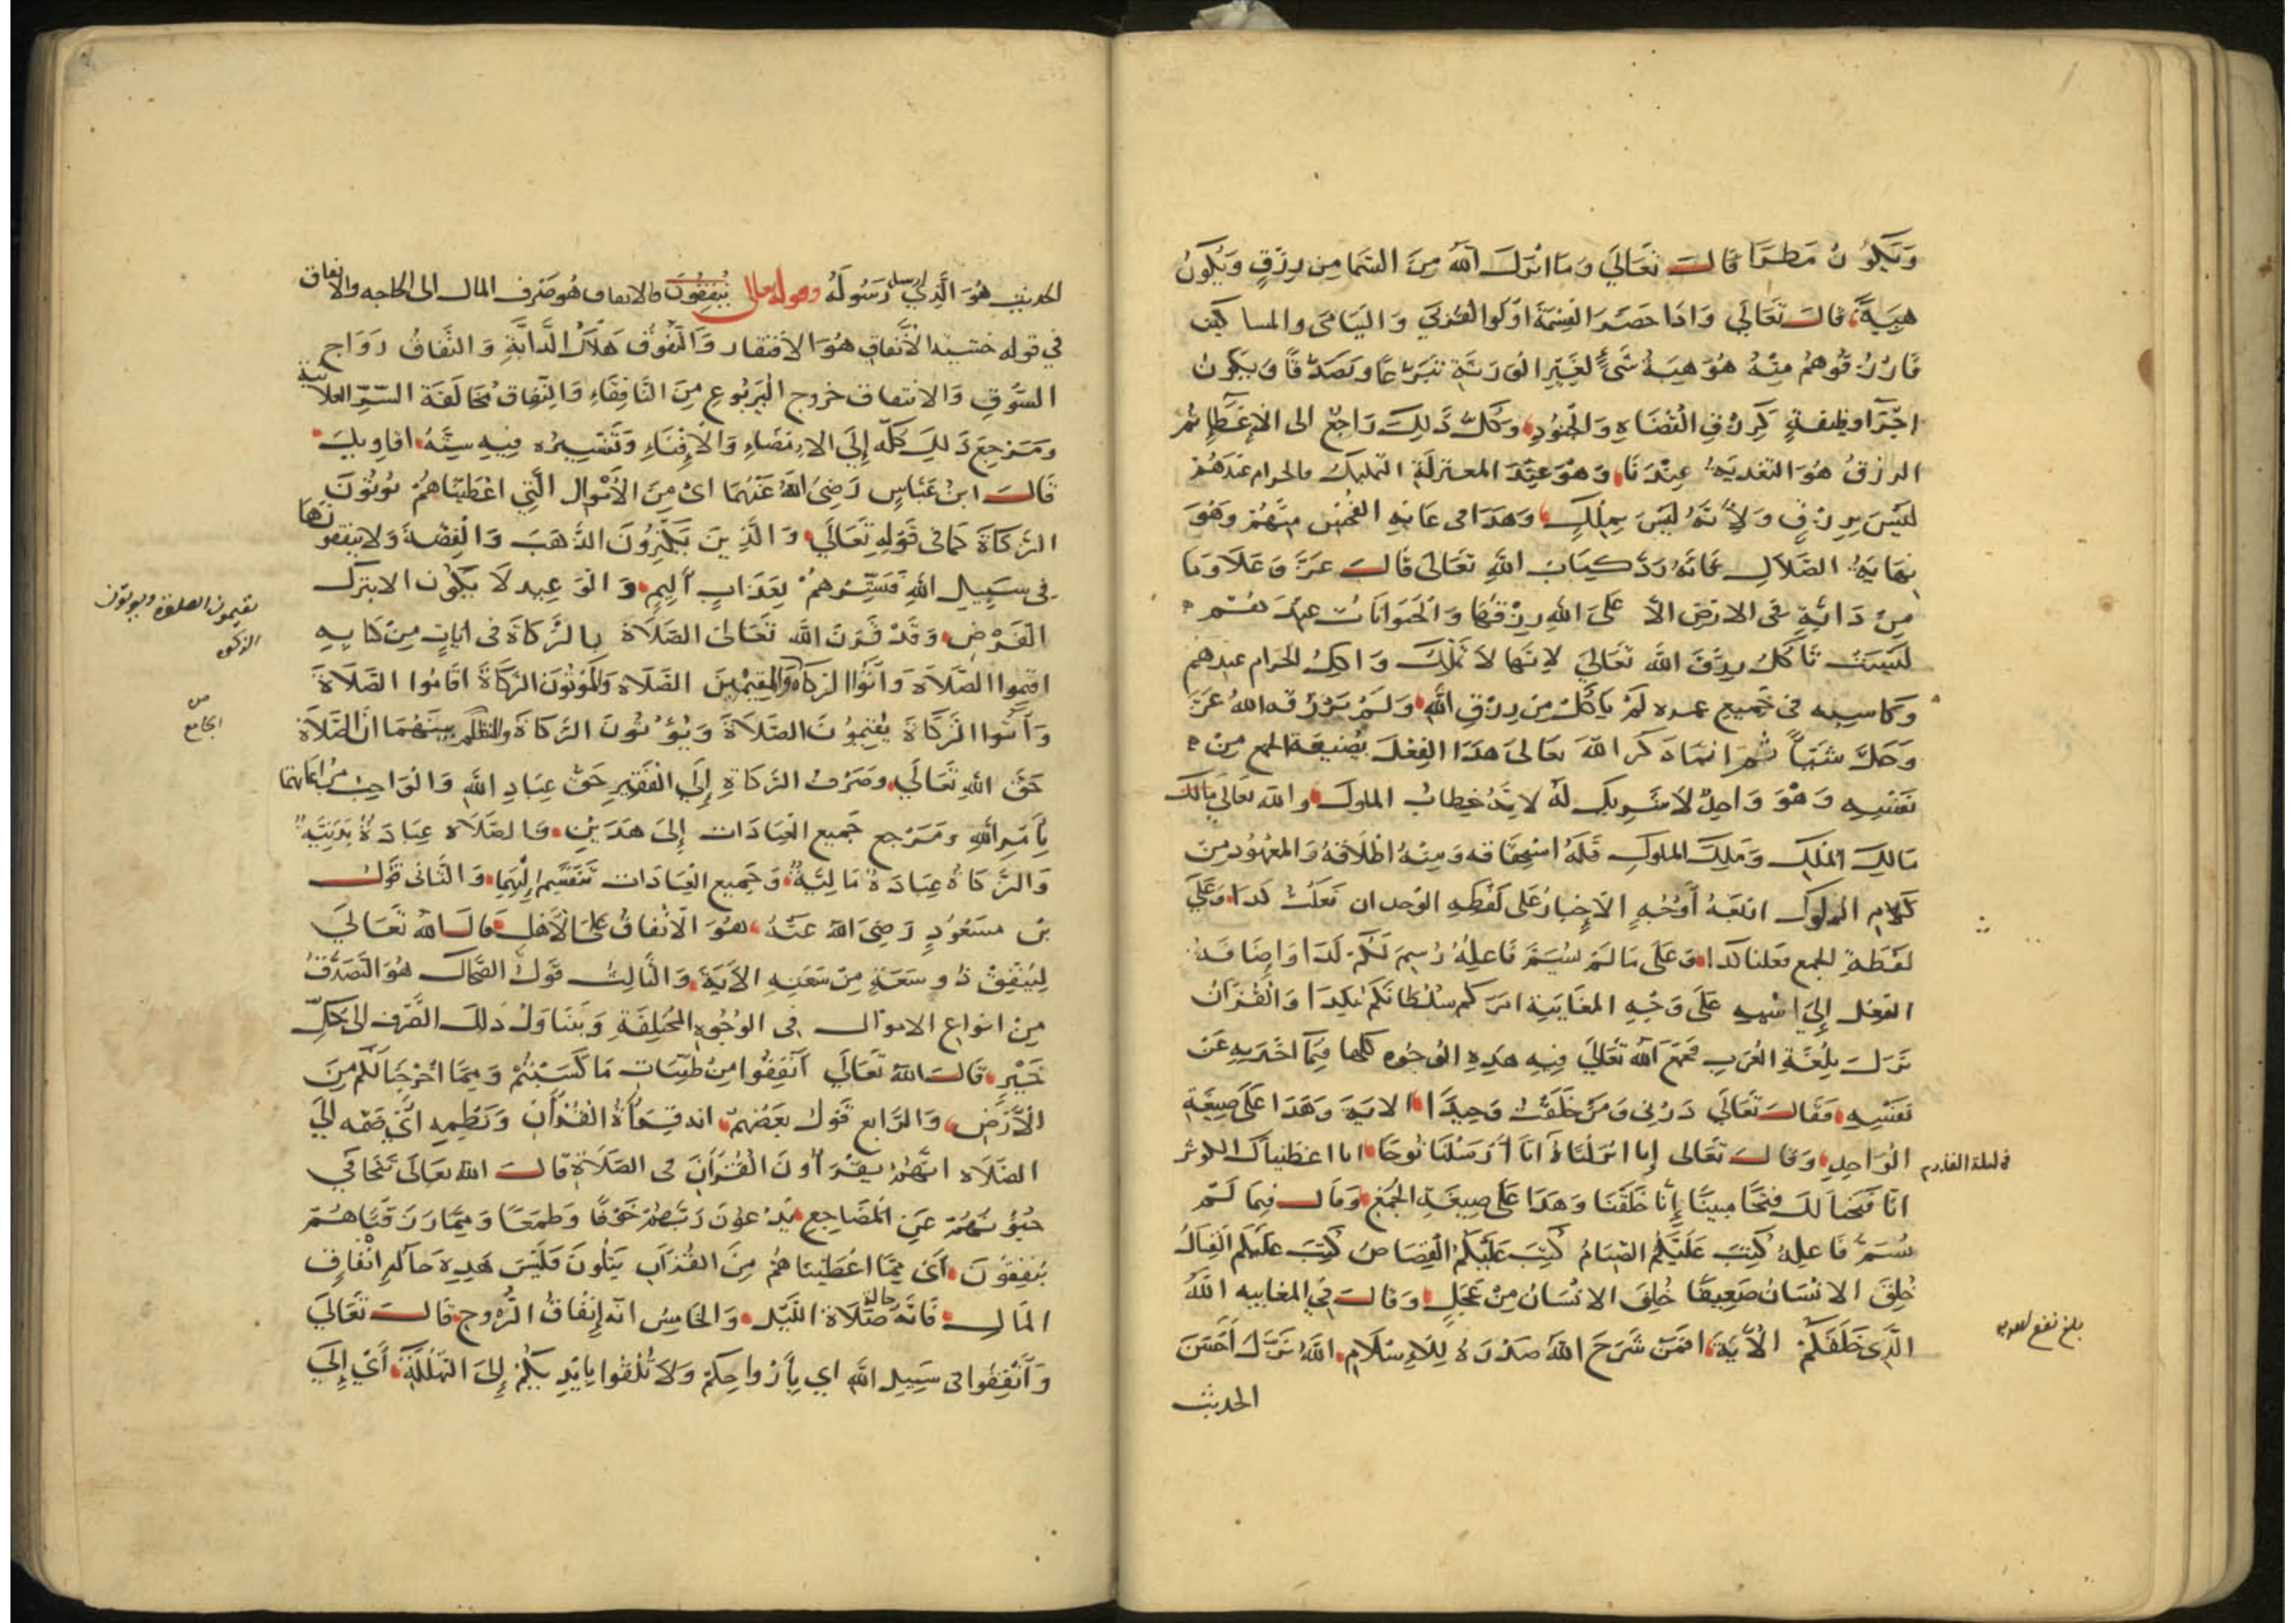 وَيَكُونُ مَطَرًا قَالَ تَعَالَى وَمَا انزَلَ اللهُ مِنَ السَّمَا مِن رِزْقٍ وَيَكُونُ
هِبَةً قالَ تَعَالَى وَاذَا حَضَرَ القِسْمَةَ اوُلُوا القُرْبَى وَاليَتَامَى والمساكين
فَارْزُقُوهُمْ مِنْهُ هُوَ هِبَةُ شَيْءٍ لِغَيْرِ الوَرَثَةِ تَبَرُّعًا وتَصَدُّقًا وَيَكُونُ
اجْرًا وظيفةٍ للقُضَاةِ وَالجُنُودِ وَكُلُّ ذَلِكَ رَاجِعٌ الى الاِعْطَاءِ ثم
الرزقُ هُوَ التغديَةُ عِنْدَنَا وَهُوَ عِنْدَ المعتزلَةِ التمليك فالحرام عندَهُمْ
لَيْسَ بِرِزْقٍ وَلاِنَّهُ لَيْسَ بِمِلْكٍ وَهَذَا فى غايةِ الفُحْشِ مِنْهُمْ وَهُوَ
نِهَايَةُ الضَّلَالِ فَانَّهُ رَدُّ كِتَابِ اللهِ تَعَالَى قَالَ عَزَّ وَعَلَا وَمَا
مِنْ دَابَّةٍ فى الارْضِ الَّا عَلَى اللهِ رِزْقُهَا وَالحَيَوَانَاتُ عِنْدَهُمْ
لَيْسَتْ تَأكُلُ رِزْقَ اللهِ تَعَالَى لاِنَّهَا لَا تَمْلِكُ وَاكِلُ الحرام عندهم
وكاسبه فى جَميعِ عمره لَمْ يَأكُلْ مِن رِزْقِ اللهِ وَلَمْ يَرْزُقه اللهُ عَزَّ
وَجَلَّ شَيْئًا ثُمَّ انمَا ذَكَرَ اللهُ تعَالى هَذَا الفِعْلَ بِصِيغَةِ الجمع مِنْ
نَفْسِهِ وَهُوَ وَاحِدٌ لَا شَرِيكَ لَهُ لاِنَّهُ خِطَابُ الملوك والله تَعَالَى مَالِكٌ
مَالِكُ المُلْكِ وَمَلِكُ الملوكِ فَلَهُ اسْتِحْقَاقه وَمِنْهُ اطْلَاقهُ وَالمعْهُودُ مِنْ
كَلَامِ الملوك اربَعَةُ أَوْجُهٍ الاِخْبَارُ عَلَى لَفْظِهِ الوَاحِد ان فَعَلْتُ كَذَا وَعَلَى
لَفْظَةِ الجمع فَعَلنا كذا وَعَلَى مَا لَمْ يُسَمَّ فَاعِلُهُ رُسِمَ لَكُمْ كَذَا وَاِضَافَةُ
الفِعْلِ إِلَى اسْمِهِ عَلَى وَجْهِ المغَايَبَةِ امَرَكُم سُلْطَانُكُمْ بكَذَا وَالقُرْآنُ
نَزَلَ بِلُغَةِ العَرَبِ فجمَعَ اللهُ تَعَالَى فِيهِ هَذِهِ الوُجُوه كلها فِيمَا اخْبَرَ بهِ عَنْ
نَفْسِهِ فَقَالَ تَعَالَى ذَرْنِى وَمَنْ خَلَقْتُ وَحِيدًا الايَةَ وَهَذَا عَلَى صِيغَةِ
الوَاحِدِ وَقالَ تعَالى إنا انْزَلْنَاهُ انَا أَرْسَلْنَا نُوحًا انا اعطَيْنَاكَ الكوثر
انّا فَتَحْنَا لَكَ فَتْحًا مبِينًا إِنَّا خَلَقْنَا وَهَذَا عَلَى صِيغَةِ الجَمْعِ وَقَالَ فِيمَا لَمْ
يُسَمَّ فَاعِلهُ كُتِبَ عَلَيْكُم الصّيَامُ كُتِبَ عَلَيْكُم القِصَاصُ كُتِبَ عَلَيْكُم القِتَالُ
خُلِقَ الاِنْسَانُ ضَعِيفًا خُلِقَ الاِنْسَانُ مِنْ عَجَلٍ وَقَالَ فى المغايبه اللهُ
الَّذِى خَلَقَكُمْ الآيَةَ افَمَنْ شَرَحَ اللهُ صَدْرَهُ لِلاِسْلَامِ اللهُ نَزَّلَ أَحْسَنَ
الحديث
بلغ
الحديثِ هُوَ الَّذِى ارسل رَسُولَهُ وقوله تعالى يُنْفِقُونَ فالانفاق هُوَ صَرْف المال الى الحاجه والانفاق
فى قوله خَشيةَ الاِنْفَاقِ هُوَ الاِفْتقار وَالنُّفُوقُ هَلَاكُ الدَّابَّةِ وَالنَّفَاقُ رَوَاجُ
السُّوقِ وَالانتفاق خروج اليَرْبُوعِ مِنَ النَّافِقَاءِ وَالنِّفَاق مُخَالَفَة السّرِّ العلانية
وَمَرْجِعُ ذَلِكَ كلّه إِلَى الاِمْضَاءِ وَالاِفْنَاءِ وَتَفْسِيره فِيهِ سِتَّةُ اقَاوِيلَ
قَالَ ابنُ عَبَّاسٍ رَضِىَ اللهُ عَنْهُمَا اىْ مِنَ الاَمْوَالِ الَّتِى اعْطَيْنَاهُمْ يُؤتُونَ
الزَّكَاةَ كما فى قَوْلِهِ تَعَالَى وَالَّذِينَ يَكْنِزُونَ الذَّهَبَ وَالْفِضَّةَ وَلَا يُنْفِقُونَهَا
فى سَبِيلِ اللهِ فَبَشِّرْهُمْ بِعَذَابٍ أَلِيمٍ وَالوَعِيد لَا يَكُونُ الا بتَرْك
الفَرْضِ وَقَدْ قَرَنَ اللهُ تَعَالَى الصَّلَاةَ بِالزَّكَاةِ فى ايَاتٍ مِنْ كتَابِهِ
اقِيمُوا الصَّلَاةَ وَآتُوا الزَكَاةَ وَالْمُقِيمِينَ الصَّلَاةَ وَالمُؤتُونَ الزَّكَاةَ اقَامُوا الصَّلَاةَ
وَآتَوُا الزَّكَاةَ يُقِيمُونَ الصَّلَاةَ وَيُؤْتُونَ الزَّكَاةَ والنظم بَيْنَهُمَا انَّ الصَّلَاةَ
حَقُّ اللهِ تَعَالَى وَصَرْفُ الزَّكَاةِ إِلَى الفَقِيرِ حَقُّ عِبَادِ اللهِ وَالوَاجِبُ مُرَاعَاتهما
بِأَمْرِ اللهِ وَمَرْجِعُ جَميعِ العِبَادَاتِ إِلَى هَذَيْنِ فَالصَّلَاةُ عِبَادَةٌ بَدَنِيَّةٌ
وَالزَّكَاةُ عِبَادَةٌ مَالِيَّةٌ وَجَمِيعُ العِبَادَات تَنْقَسِمُ اِلَيْهِمَا وَالثَّانى قَوْلُ
بْن مَسْعُودٍ رَضِىَ اللهُ عَنْهُ هُوَ الاِنْفَاقُ عَلَى الاَهْلِ قَالَ اللهُ تَعَالَى
لِيُنْفِقْ ذُو سَعَةٍ مِنْ سَعَتِهِ الآيَةَ وَالثَّالِثُ قَوْلُ الضَّحَّاك هُوَ التَّصَدُّقُ
مِنْ انوَاعِ الاموَالِ فى الوُجُوهِ المُخْتَلِفَةِ وَيتنَاوَلُ ذَلِكَ الصَّرْف الى كلِّ
خَيْرٍ قَالَ اللهُ تَعَالَى أَنْفِقُوا مِنْ طَيِّبَاتِ مَا كَسَبْتُمْ وَمِمَّا أَخْرَجْنَا لَكُم مِنَ
الاَرْضِ وَالرَّابع قَوْلُ بَعْضِهِمْ انه قِرَاءةُ القُرْآنِ وَنَظْمِهِ اىْ ضَمّه الَى
الصَّلَاه انَّهُمْ يَقْرَأُونَ القُرْآنَ فى الصَّلَاةِ قَالَ اللهُ تَعَالَى تَتَجَافَى
جُنُوبُهُمْ عَنِ المَضَاجِعِ يَدْعُونَ رَبَّهُمْ خَوْفًا وَطَمَعًا وَمِمَّا رَزَقْنَاهُمْ
يُنْفِقُونَ أَىْ مِمَّا اعْطَيْنَاهُمْ مِنَ القُرْآنِ يَتْلُونَ فَلَيْسَ هَذِهِ حَالَةَ اِنْفَاقِ
المَالِ فَانَّهُ حالة صَلَاةِ اللَّيْلِ وَالخَامِسُ انّه إِنْفَاقُ الرُّوحِ قَالَ تَعَالَى
وَأَنْفِقُوا فى سَبِيلِ اللهِ اى بِأَرْوَاحِكمْ وَلَا تُلْقُوا بِايْدِيكُمْ إِلَى التَّهْلُكَةِ أَىْ إِلَى
يقيمون الصلوة ويوتون
الزكوه